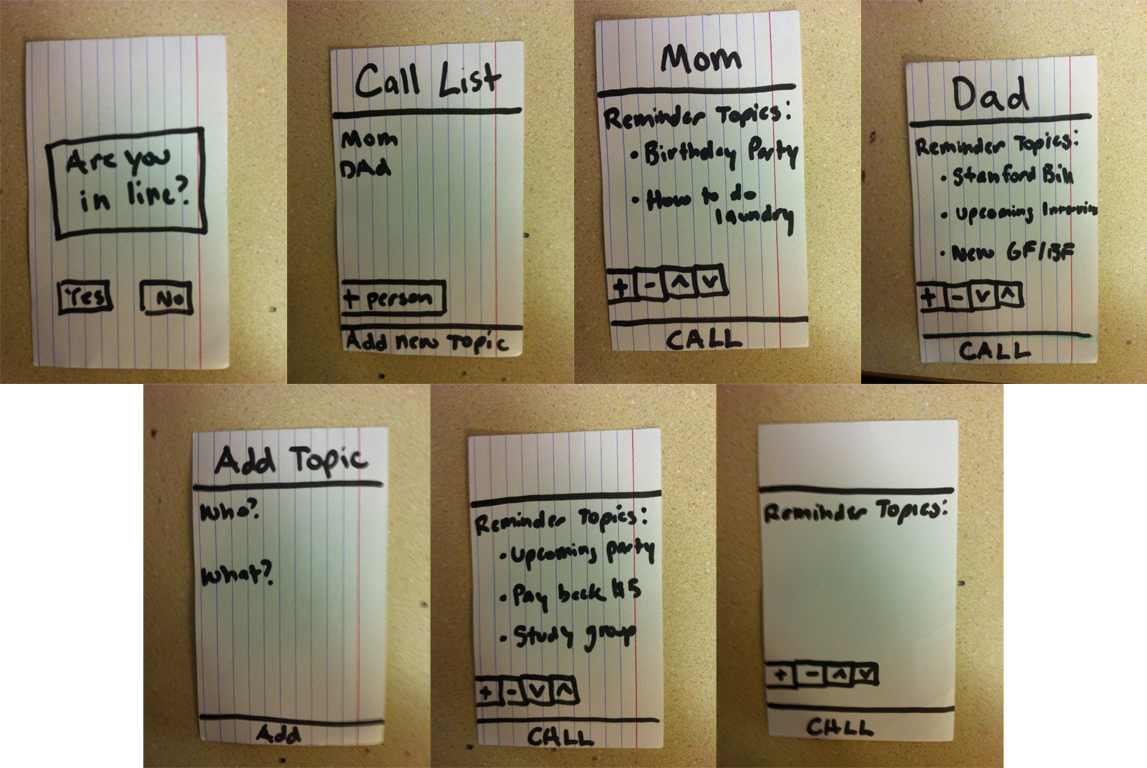 Are you
in line?
Yes
No
Call List
Mom
DAd
+ person
Add new Topic
Mom
Reminder Topics:
• Birthday Party
• How to do
laundry
+ - ^ v
CALL
Dad
Reminder Topics:
• Stanford Bill
• Upcoming
• New GF/BF
+ - v ^
CALL
Add Topic
Who?
What?
Add
Reminder Topics:
• Upcoming party
• Pay back $5
• Study group
+ - v ^
CALL
Reminder Topics:
+ - ^ v
CALL